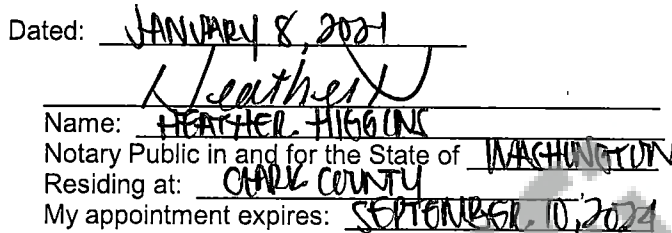 Dated: JANUARY 8, 2021
Heather H
Name: HEATHER HIGGINS
Notary Public in and for the State of WASHINGTON
Residing at: CLARK COUNTY
My appointment expires: SEPTEMBER 10, 2021